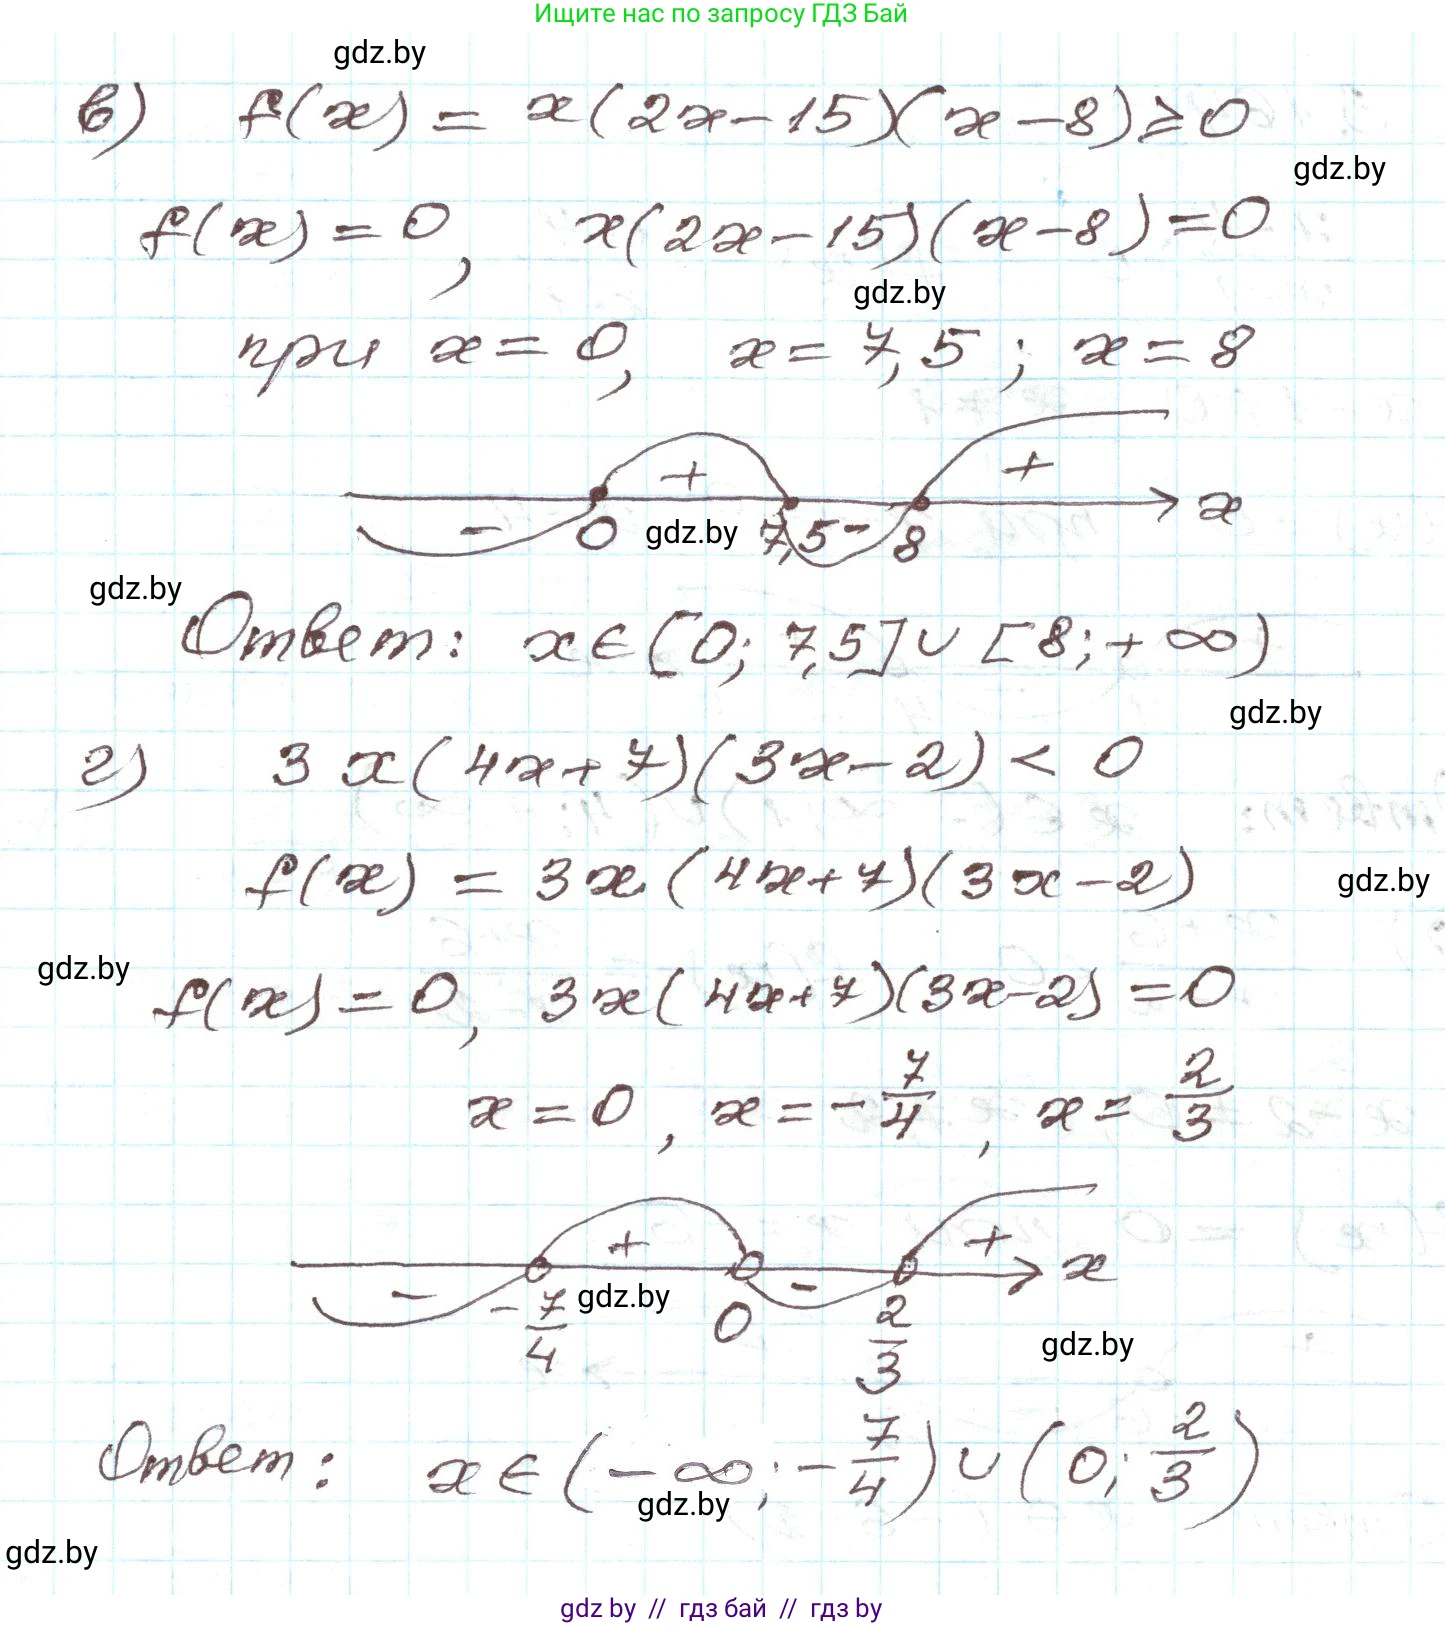 Ищите нас по запросу ГДЗ Бай
gdz.by
в) f(x) = x(2x-15)(x-8)≥0
gdz.by
f(x)=0, x(2x-15)(x-8)=0
gdz.by
при x=0, x=7,5; x=8
+ +
x
- 0 gdz.by 7,5 - 8
gdz.by
Ответ: x∈[0; 7,5]∪[8;+∞)
gdz.by
г) 3x(4x+7)(3x-2)<0
f(x) = 3x(4x+7)(3x-2)
gdz.by
gdz.by
f(x)=0, 3x(4x+7)(3x-2)=0
x=0, x=-7/4, x=2/3
+ +
x
- -7/4 gdz.by 0 - 2/3
gdz.by
Ответ: x∈(-∞;-7/4)∪(0;2/3)
gdz.by
gdz.by
gdz by // гдз бай // гдз by